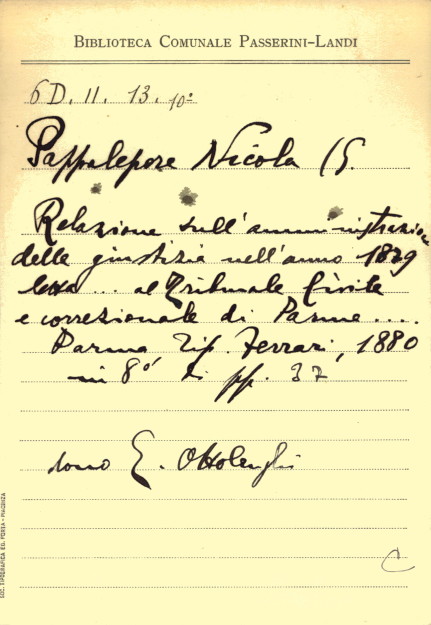 BIBLIOTECA COMUNALE PASSERINI-LANDI
6 D. II. 13. 10º
Pappalepore Nicola G.
Relazione sull'amministrazione
della giustizia nell'anno 1879
letta ... al Tribunale Civile
e correzionale di Parma ....
Parma, Tip. Ferrari, 1880
in 8º di pp. 37
dono E. Ottolenghi
C
SOC. TIPOGRAFICA ED. PORTA - PIACENZA